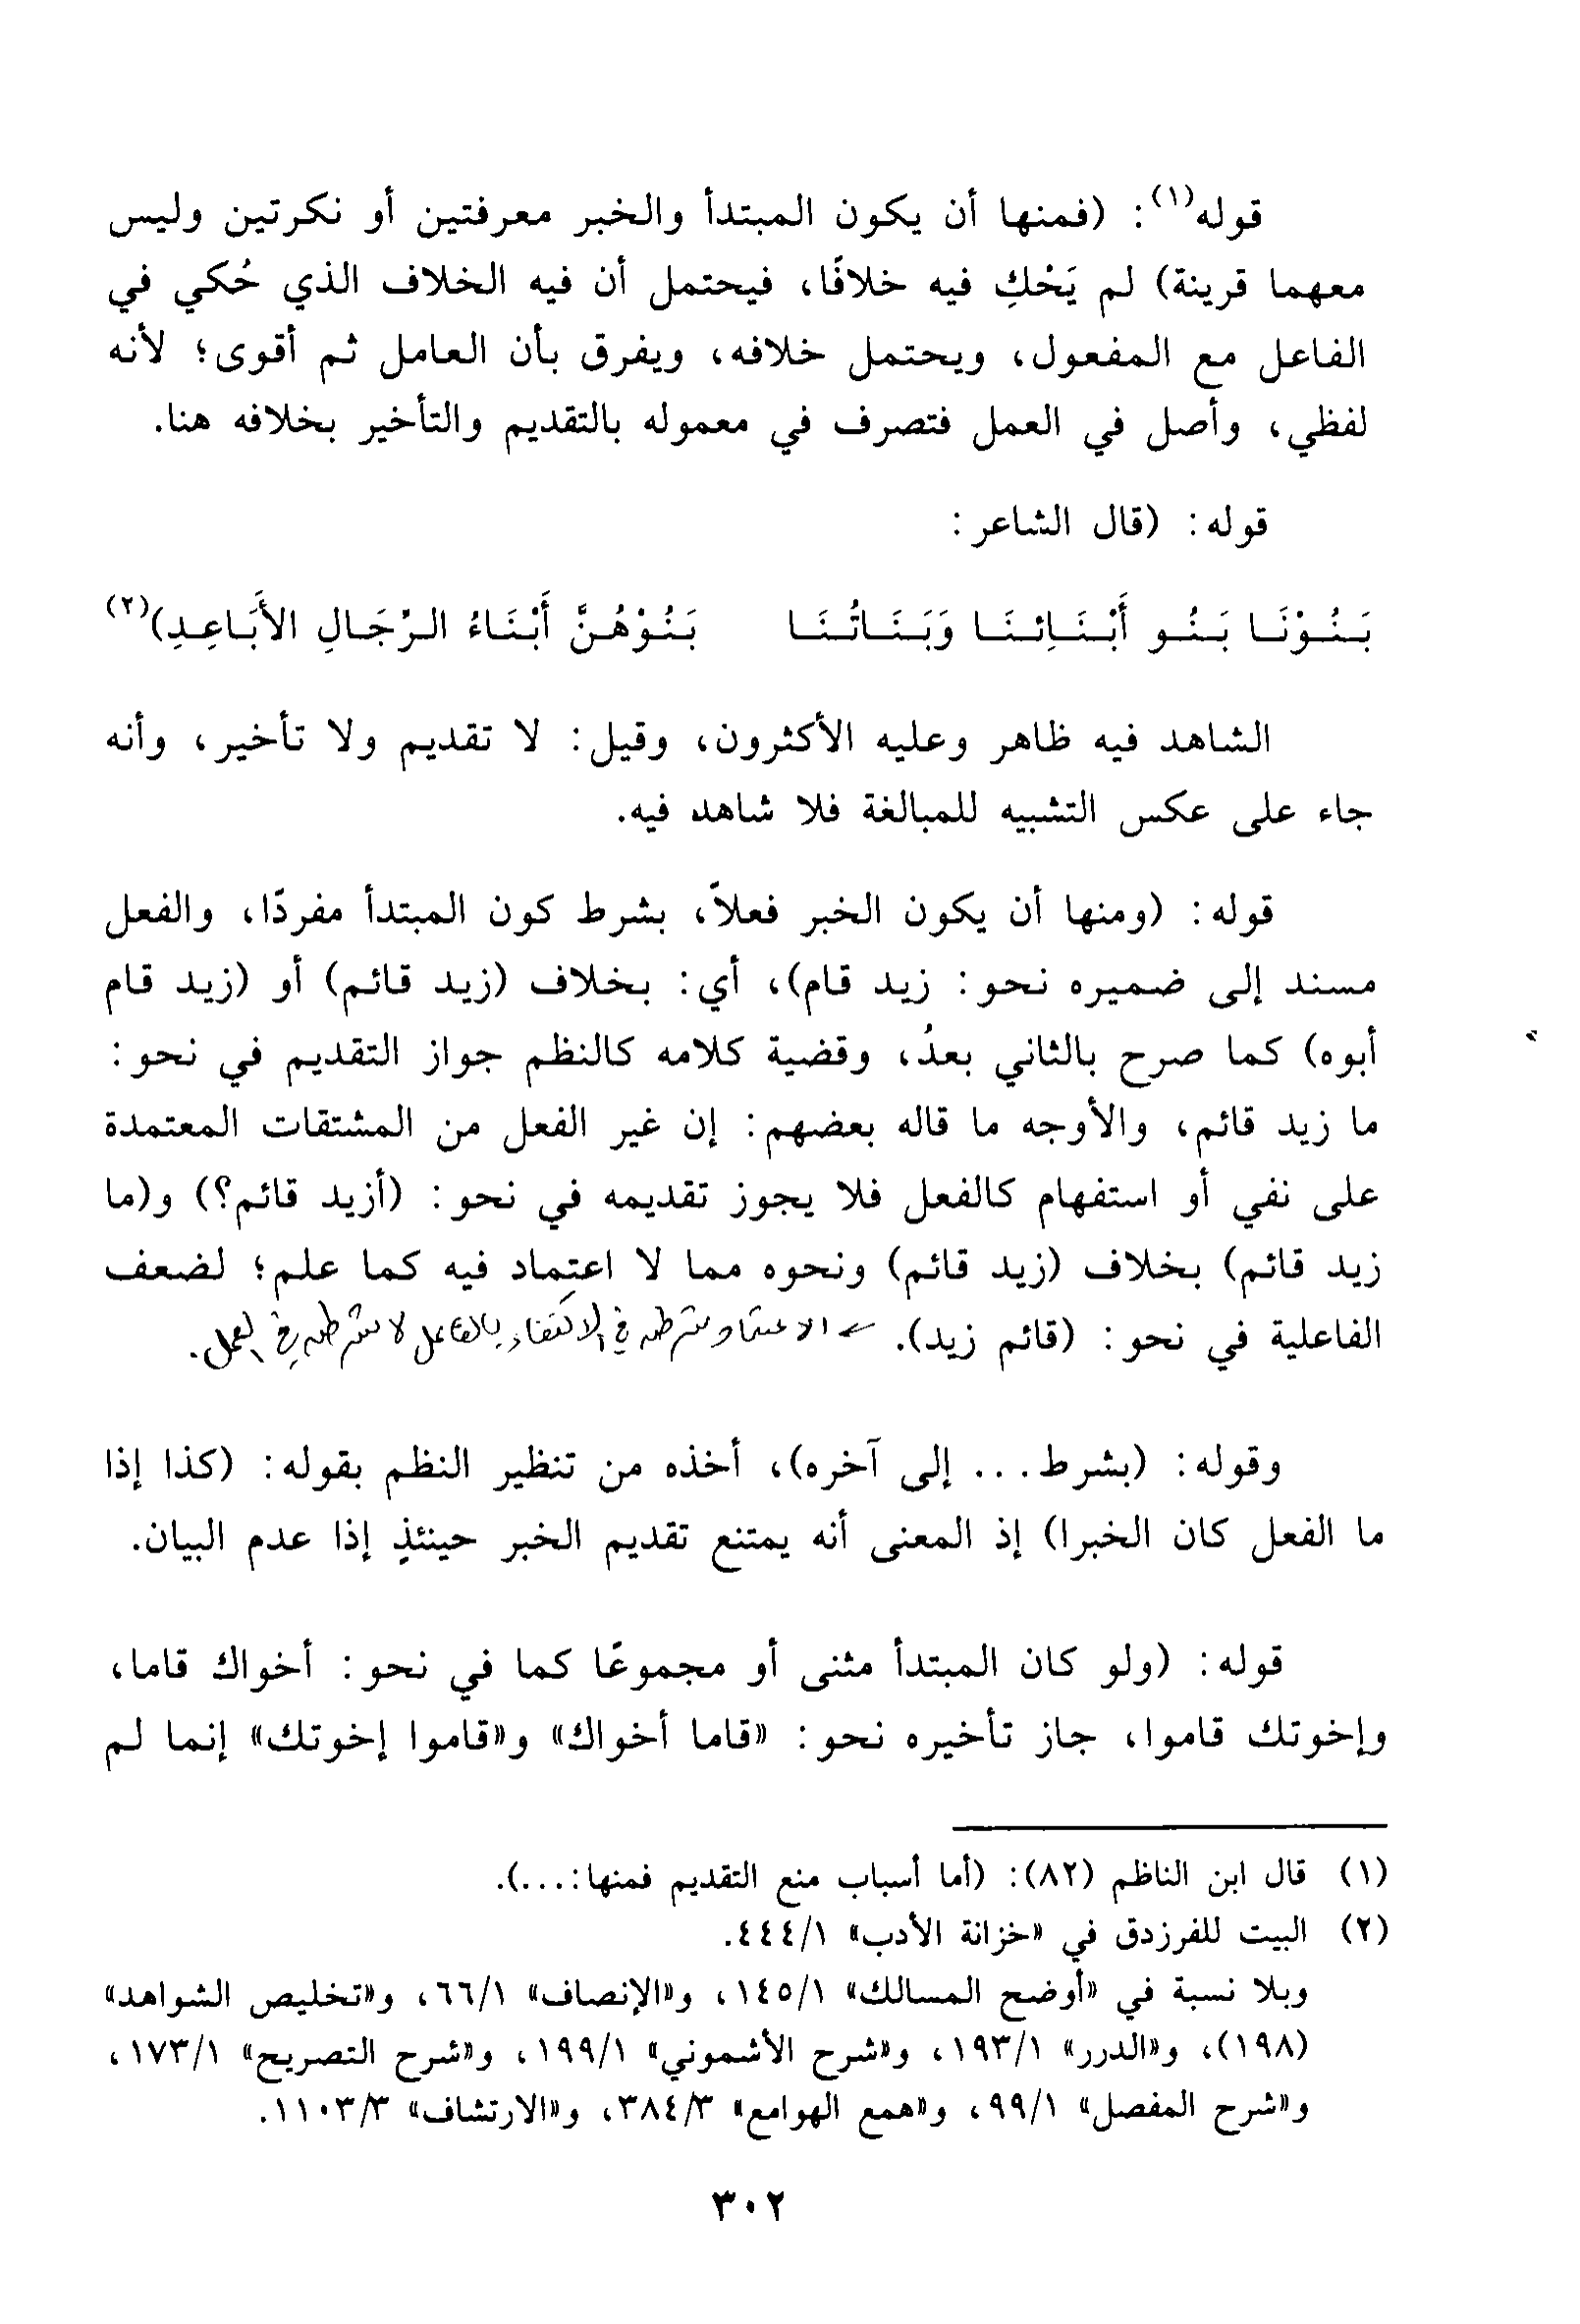 قوله(١): (فمنها أن يكون المبتدأ والخبر معرفتين أو نكرتين وليس
معهما قرينة) لم يَحْكِ فيه خلافًا، فيحتمل أن فيه الخلاف الذي حُكي في
الفاعل مع المفعول، ويحتمل خلافه، ويفرق بأن العامل ثم أقوى؛ لأنه
لفظي، وأصل في العمل فتصرف في معموله بالتقديم والتأخير بخلافه هنا.
قوله: (قال الشاعر:
بَنُوْنَا بَنُو أَبْنَائِنَا وَبَنَاتُنَا بَنُوْهُنَّ أَبْنَاءُ الرِّجَالِ الأَبَاعِدِ)(٢)
الشاهد فيه ظاهر وعليه الأكثرون، وقيل: لا تقديم ولا تأخير، وأنه
جاء على عكس التشبيه للمبالغة فلا شاهد فيه.
قوله: (ومنها أن يكون الخبر فعلاً، بشرط كون المبتدأ مفردًا، والفعل
مسند إلى ضميره نحو: زيد قام)، أي: بخلاف (زيد قائم) أو (زيد قام
أبوه) كما صرح بالثاني بعدُ، وقضية كلامه كالنظم جواز التقديم في نحو:
ما زيد قائم، والأوجه ما قاله بعضهم: إن غير الفعل من المشتقات المعتمدة
على نفي أو استفهام كالفعل فلا يجوز تقديمه في نحو: (أزيد قائم؟) و(ما
زيد قائم) بخلاف (زيد قائم) ونحوه مما لا اعتماد فيه كما علم؛ لضعف
الفاعلية في نحو: (قائم زيد). ← الاعتماد شرط في الاكتفاء بالفاعل لا شرط في العمل.
وقوله: (بشرط... إلى آخره)، أخذه من تنظير النظم بقوله: (كذا إذا
ما الفعل كان الخبرا) إذ المعنى أنه يمتنع تقديم الخبر حينئذٍ إذا عدم البيان.
قوله: (ولو كان المبتدأ مثنى أو مجموعًا كما في نحو: أخواك قاما،
وإخوتك قاموا، جاز تأخيره نحو: «قاما أخواك» و«قاموا إخوتك» إنما لم
(١) قال ابن الناظم (٨٢): (أما أسباب منع التقديم فمنها:...).
(٢) البيت للفرزدق في «خزانة الأدب» ٤٤٤/١.
وبلا نسبة في «أوضح المسالك» ١٤٥/١، و«الإنصاف» ٦٦/١، و«تخليص الشواهد»
(١٩٨)، و«الدرر» ١٩٣/١، و«شرح الأشموني» ١٩٩/١، و«شرح التصريح» ١٧٣/١،
و«شرح المفصل» ٩٩/١، و«همع الهوامع» ٣٨٤/٣، و«الارتشاف» ١١٠٣/٣.
٣٠٢